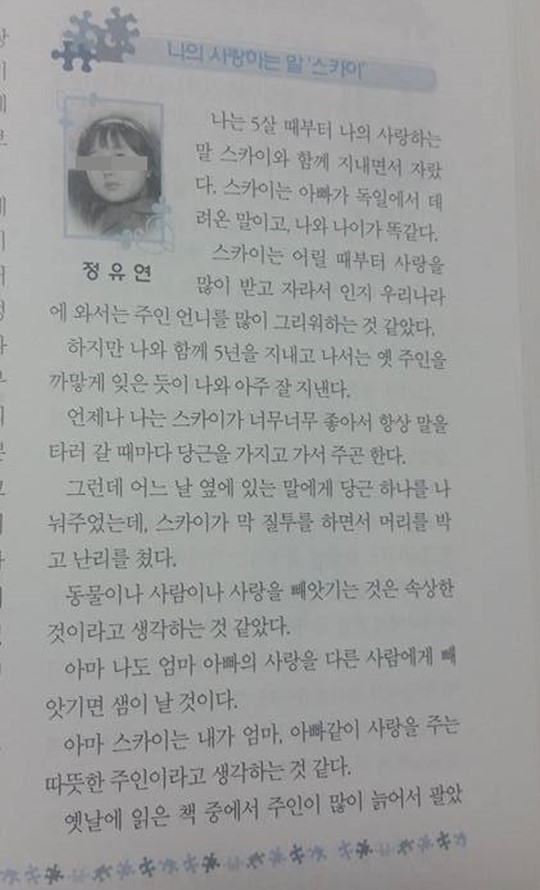 나의 사랑하는 말 '스카이'
나는 5살 때부터 나의 사랑하는
말 스카이와 함께 지내면서 자랐
다. 스카이는 아빠가 독일에서 데
려온 말이고, 나와 나이가 똑같다.
스카이는 어릴 때부터 사랑을
많이 받고 자라서 인지 우리나라
정유연
에 와서는 주인 언니를 많이 그리워하는 것 같았다.
하지만 나와 함께 5년을 지내고 나서는 옛 주인을
까맣게 잊은 듯이 나와 아주 잘 지낸다.
언제나 나는 스카이가 너무너무 좋아서 항상 말을
타러 갈 때마다 당근을 가지고 가서 주곤 한다.
그런데 어느 날 옆에 있는 말에게 당근 하나를 나
눠주었는데, 스카이가 막 질투를 하면서 머리를 박
고 난리를 쳤다.
동물이나 사람이나 사랑을 빼앗기는 것은 속상한
것이라고 생각하는 것 같았다.
아마 나도 엄마 아빠의 사랑을 다른 사람에게 빼
앗기면 샘이 날 것이다.
아마 스카이는 내가 엄마, 아빠같이 사랑을 주는
따뜻한 주인이라고 생각하는 것 같다.
옛날에 읽은 책 중에서 주인이 많이 늙어서 팔았